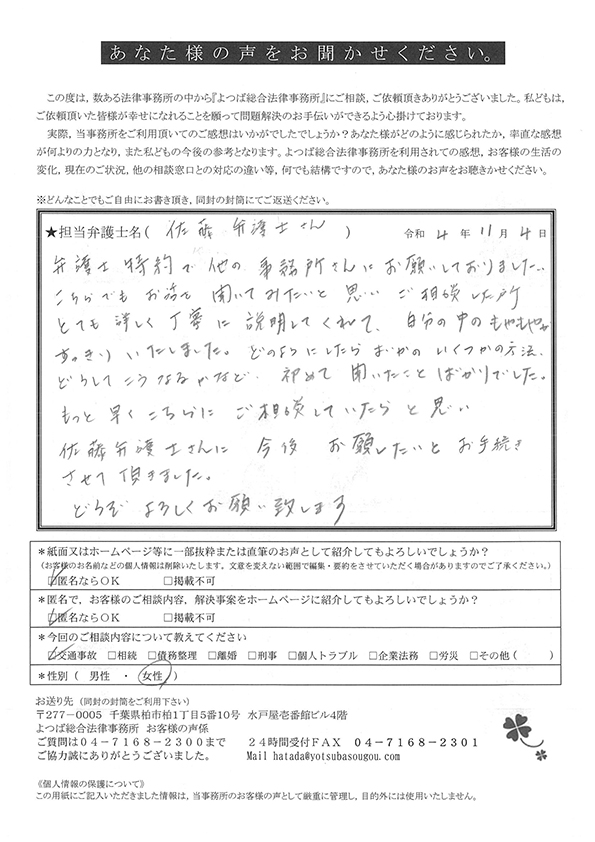 あなた様の声をお聞かせください。
この度は，数ある法律事務所の中から『よつば総合法律事務所』にご相談，ご依頼頂きありがとうございました。私どもは，
ご依頼頂いた皆様が幸せになれることを願って問題解決のお手伝いができるよう心掛けております。
実際，当事務所をご利用頂いてのご感想はいかがでしたでしょうか？あなた様がどのように感じられたか，率直な感想
が何よりの力となり，また私どもの今後の参考となります。よつば総合法律事務所を利用されての感想，お客様の生活の
変化，現在のご状況，他の相談窓口との対応の違い等，何でも結構ですので，あなた様のお声をお聴きかせください。
※どんなことでもご自由にお書き頂き，同封の封筒にてご返送ください。
★担当弁護士名（ 佐藤 弁護士さん ） 令和 4 年 11 月 4 日
弁護士特約で他の事務所さんにお願いしておりました。
こちらでもお話を聞いてみたいと思い ご相談した所
とても詳しく丁寧に説明してくれて、自分の中のもやもやが
すっきりいたしました。どのようにしたらよいかの いくつかの方法、
どうしてこうなるかなど、初めて聞いたことばかりでした。
もっと早くこちらに ご相談していたらと思い
佐藤弁護士さんに 今後 お願したいと お手続き
させて頂きました。
どうぞ よろしくお願い致します
＊紙面又はホームページ等に一部抜粋または直筆のお声として紹介してもよろしいでしょうか？
（お客様のお名前などの個人情報は削除いたします。文意を変えない範囲で編集・要約をさせていただく場合がありますのでご了承ください。）
☑匿名ならOK □掲載不可
＊匿名で，お客様のご相談内容，解決事案をホームページに紹介してもよろしいでしょうか？
☑匿名ならOK □掲載不可
＊今回のご相談内容について教えてください
☑交通事故 □相続 □債務整理 □離婚 □刑事 □個人トラブル □企業法務 □労災 □その他（ ）
＊性別（ 男性 ・ 女性 ）
お送り先（同封の封筒をご利用下さい）
〒277-0005 千葉県柏市柏1丁目5番10号 水戸屋壱番館ビル4階
よつば総合法律事務所 お客様の声係
ご質問は04-7168-2300まで 24時間受付FAX 04-7168-2301
ご協力誠にありがとうございました。 Mail hatada@yotsubasougou.com
《個人情報の保護について》
この用紙にご記入いただきました情報は，当事務所のお客様の声として厳重に管理し，目的外には使用いたしません。